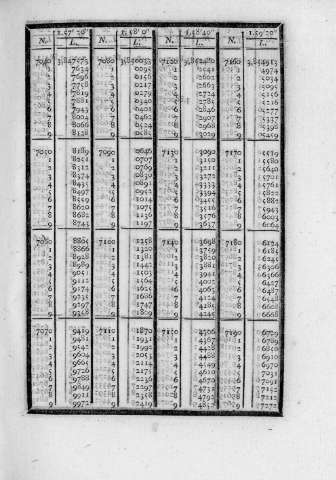 1.57'.20" 1.58'.0" 1.58'.40" 1.59'.20"
N. L. N. L. N. L. N. L.
7040 3,8475727 7080 3,8500333 7120 3,8524800 7160 3,8549130
1 7634 1 0395 1 2541 1 4974
2 7696 2 0156 2 2602 2 5034
3 7758 3 0217 3 2663 3 5095
4 7819 4 0279 4 2724 4 5156
5 7881 5 0340 5 2785 5 5216
6 7943 6 0401 6 2846 6 5277
7 8004 7 0462 7 2907 7 5337
8 8066 8 0524 8 2968 8 5398
9 8128 9 0585 9 3029 9 5459
7050 8189 7090 0646 7130 3090 7170 5519
1 8251 1 0707 1 3150 1 5580
2 8312 2 0769 2 3211 2 5640
3 8374 3 0830 3 3272 3 5701
4 8435 4 0891 4 3333 4 5761
5 8497 5 0952 5 3394 5 5822
6 8559 6 1014 6 3455 6 5882
7 8620 7 1075 7 3516 7 5943
8 8682 8 1136 8 3576 8 6003
9 8743 9 1197 9 3637 9 6064
7060 8805 7100 1258 7140 3698 7180 6124
1 8866 1 1320 1 3759 1 6185
2 8928 2 1381 2 3820 2 6245
3 8989 3 1442 3 3881 3 6306
4 9051 4 1503 4 3941 4 6366
5 9112 5 1564 5 4002 5 6427
6 9174 6 1625 6 4063 6 6487
7 9235 7 1686 7 4124 7 6548
8 9297 8 1747 8 4185 8 6608
9 9358 9 1809 9 4245 9 6668
7070 9419 7110 1870 7150 4306 7190 6729
1 9481 1 1931 1 4367 1 6789
2 9542 2 1992 2 4428 2 6850
3 9604 3 2053 3 4488 3 6910
4 9665 4 2114 4 4549 4 6970
5 9726 5 2175 5 4610 5 7031
6 9788 6 2236 6 4670 6 7091
7 9849 7 2297 7 4731 7 7152
8 9911 8 2358 8 4792 8 7212
9 9972 9 2419 9 4852 9 7272